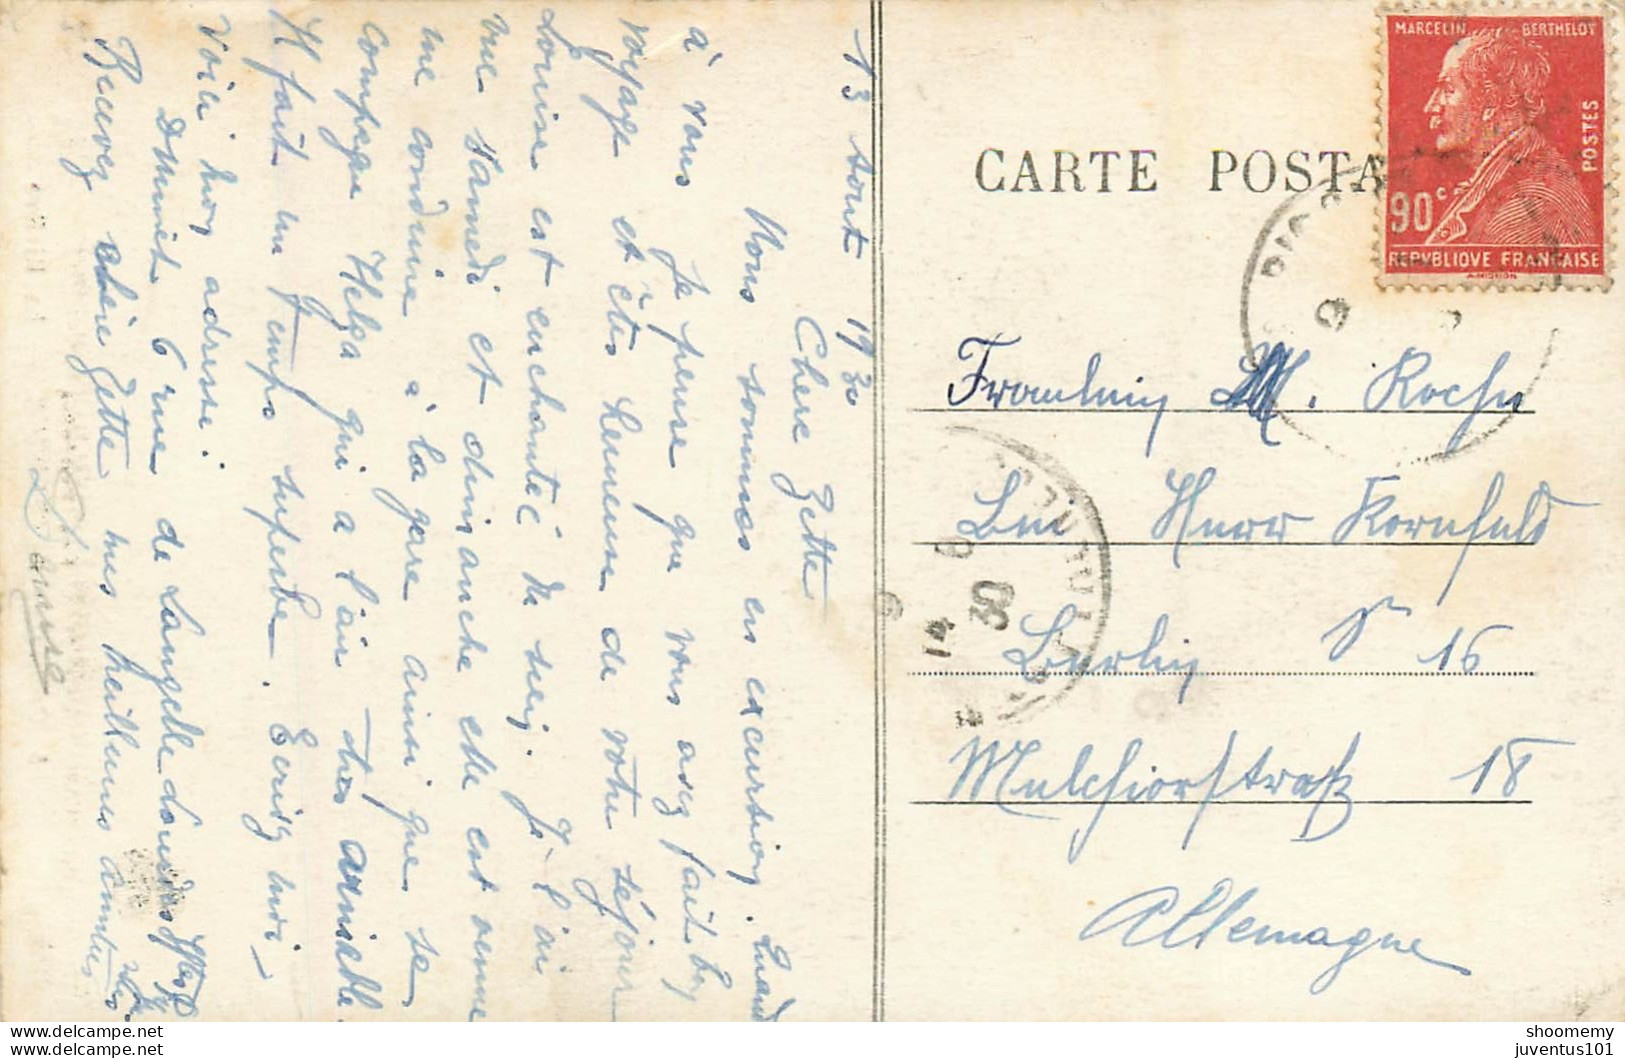 13 Aout 1930
Chere Zette
Nous sommes en excursion, quand
à vous je pense que vous avez fait bon
voyage et êtes heureux de votre séjour
Louise est enchantée du sien. Je l'ai
vue samedi et dimanche elle est venue
me conduire à la gare ainsi que sa
compagne Helga qui a l'air très aimable.
Il fait un temps superbe. Ecrivez moi
voici mon adresse:
6 rue de Langelle Lourdes Htes Py
Recevez chère Zette mes meilleures amitiés
CARTE POSTA
MARCELIN BERTHELOT
POSTES
90c
REPUBLIQUE FRANÇAISE
Fraulein M. Rochu
bei Herr Kornfeld
Berlin S 16
Melchiorstraße 18
Allemagne
shoomemy
juventus101